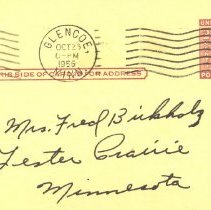 GLENCOE,
OCT 23
PM
1956
MINN.
THIS SIDE OF CARD IS FOR ADDRESS
UNI
PO
Mrs. Fred Birkholz
Lester Prairie
Minnesota